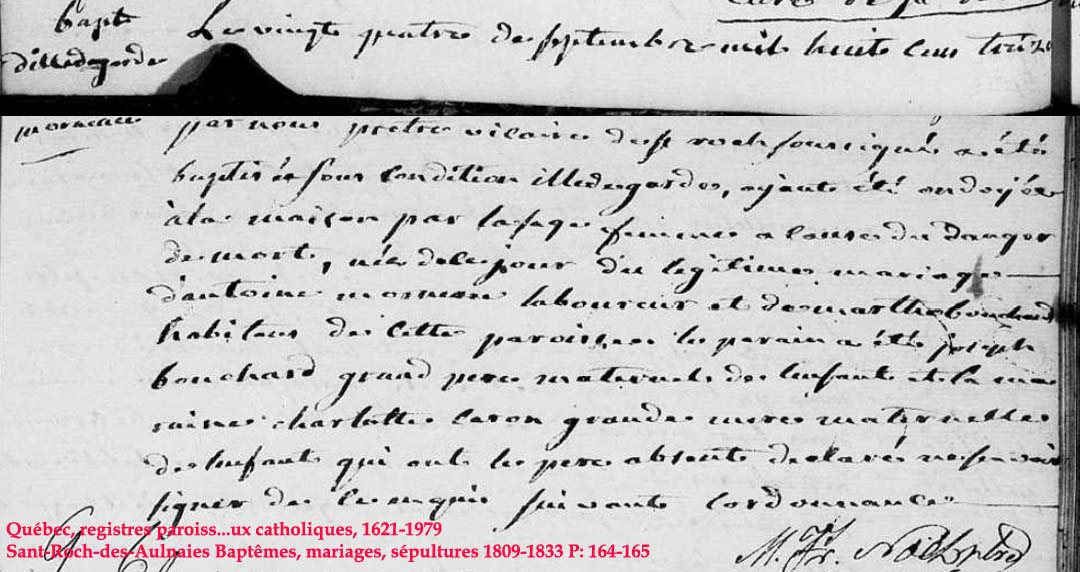 Bapt
dilledegarde
morneau
Le vingt quatre de septembre mil huit cens treize
par nous prêtre vicaire de st roch soussigné a été
baptisée sous condition illedegarde, ayant été ondoyée
à la maison par la sage femme a cause du danger
de mort, née de le jour du legitime mariage
d'antoine morneau laboureur et de marthe bouchard
habitans de cette paroisse le parain a été joseph
bouchard grand pere maternel de l'enfant et la ma
raine charlotte caron grande mere maternelle
de l'enfant qui ont le pere absent declaré ne savoir
signer de ce enquis suivant l'ordonnance
M. F. Noël ptre
Québec, registres paroiss...ux catholiques, 1621-1979
Sant-Roch-des-Aulnaies Baptêmes, mariages, sépultures 1809-1833 P: 164-165